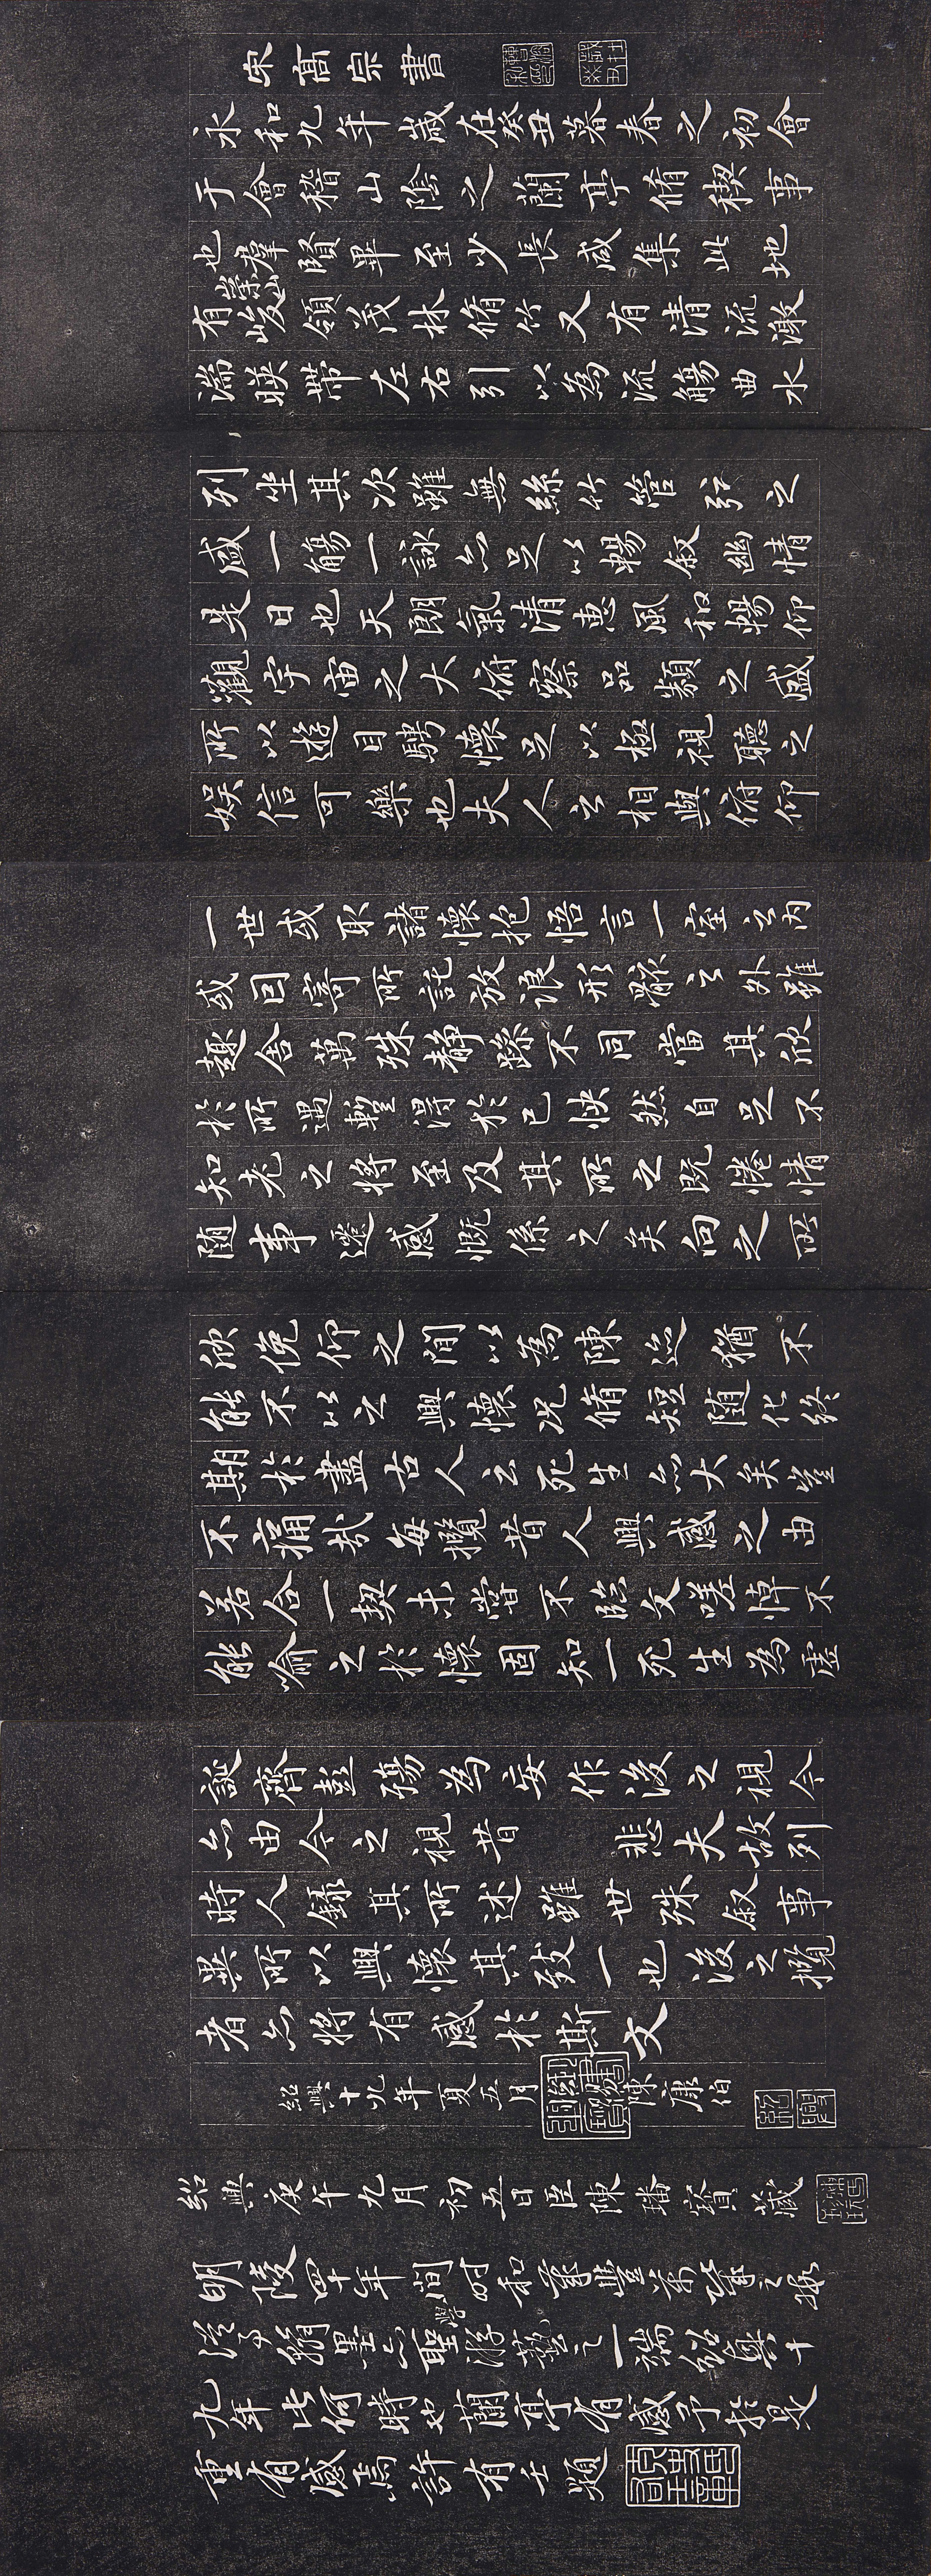 宋高宗書
永和九年歲在癸丑暮春之初會
于會稽山陰之蘭亭脩稧事
也羣賢畢至少長咸集此地
有崇山峻領茂林脩竹又有清流激
湍暎帶左右引以為流觴曲水
列坐其次雖無絲竹管弦之
盛一觴一詠亦足以暢叙幽情
是日也天朗氣清惠風和暢仰
觀宇宙之大俯察品類之盛
所以遊目騁懷足以極視聽之
娛信可樂也夫人之相與俯仰
一世或取諸懷抱悟言一室之內
或因寄所託放浪形骸之外雖
趣舍萬殊静躁不同當其欣
於所遇暫得於己怏然自足不
知老之將至及其所之既惓情
随事遷感慨係之矣向之所
欣俛仰之間以為陳迹猶不
能不以之興懷况脩短随化終
期於盡古人云死生亦大矣豈
不痛哉每攬昔人興感之由
若合一契未嘗不臨文嗟悼不
能喻之於懷固知一死生為虛
誕齊彭殤為妄作後之視今
亦由今之視昔悲夫故列
時人錄其所述雖世殊叙事
異所以興懷其致一也後之攬
者亦將有感於斯文
紹興十九年夏五月賜陳康伯
紹興
紹興庚午九月初五日臣陳璠寶藏
明陵四十年間時和歲豐萬幾之暇
從事翰墨亦聖學游藝之一端紹興十
九年此何時也蘭亭有感予於是
重有感焉許有壬題